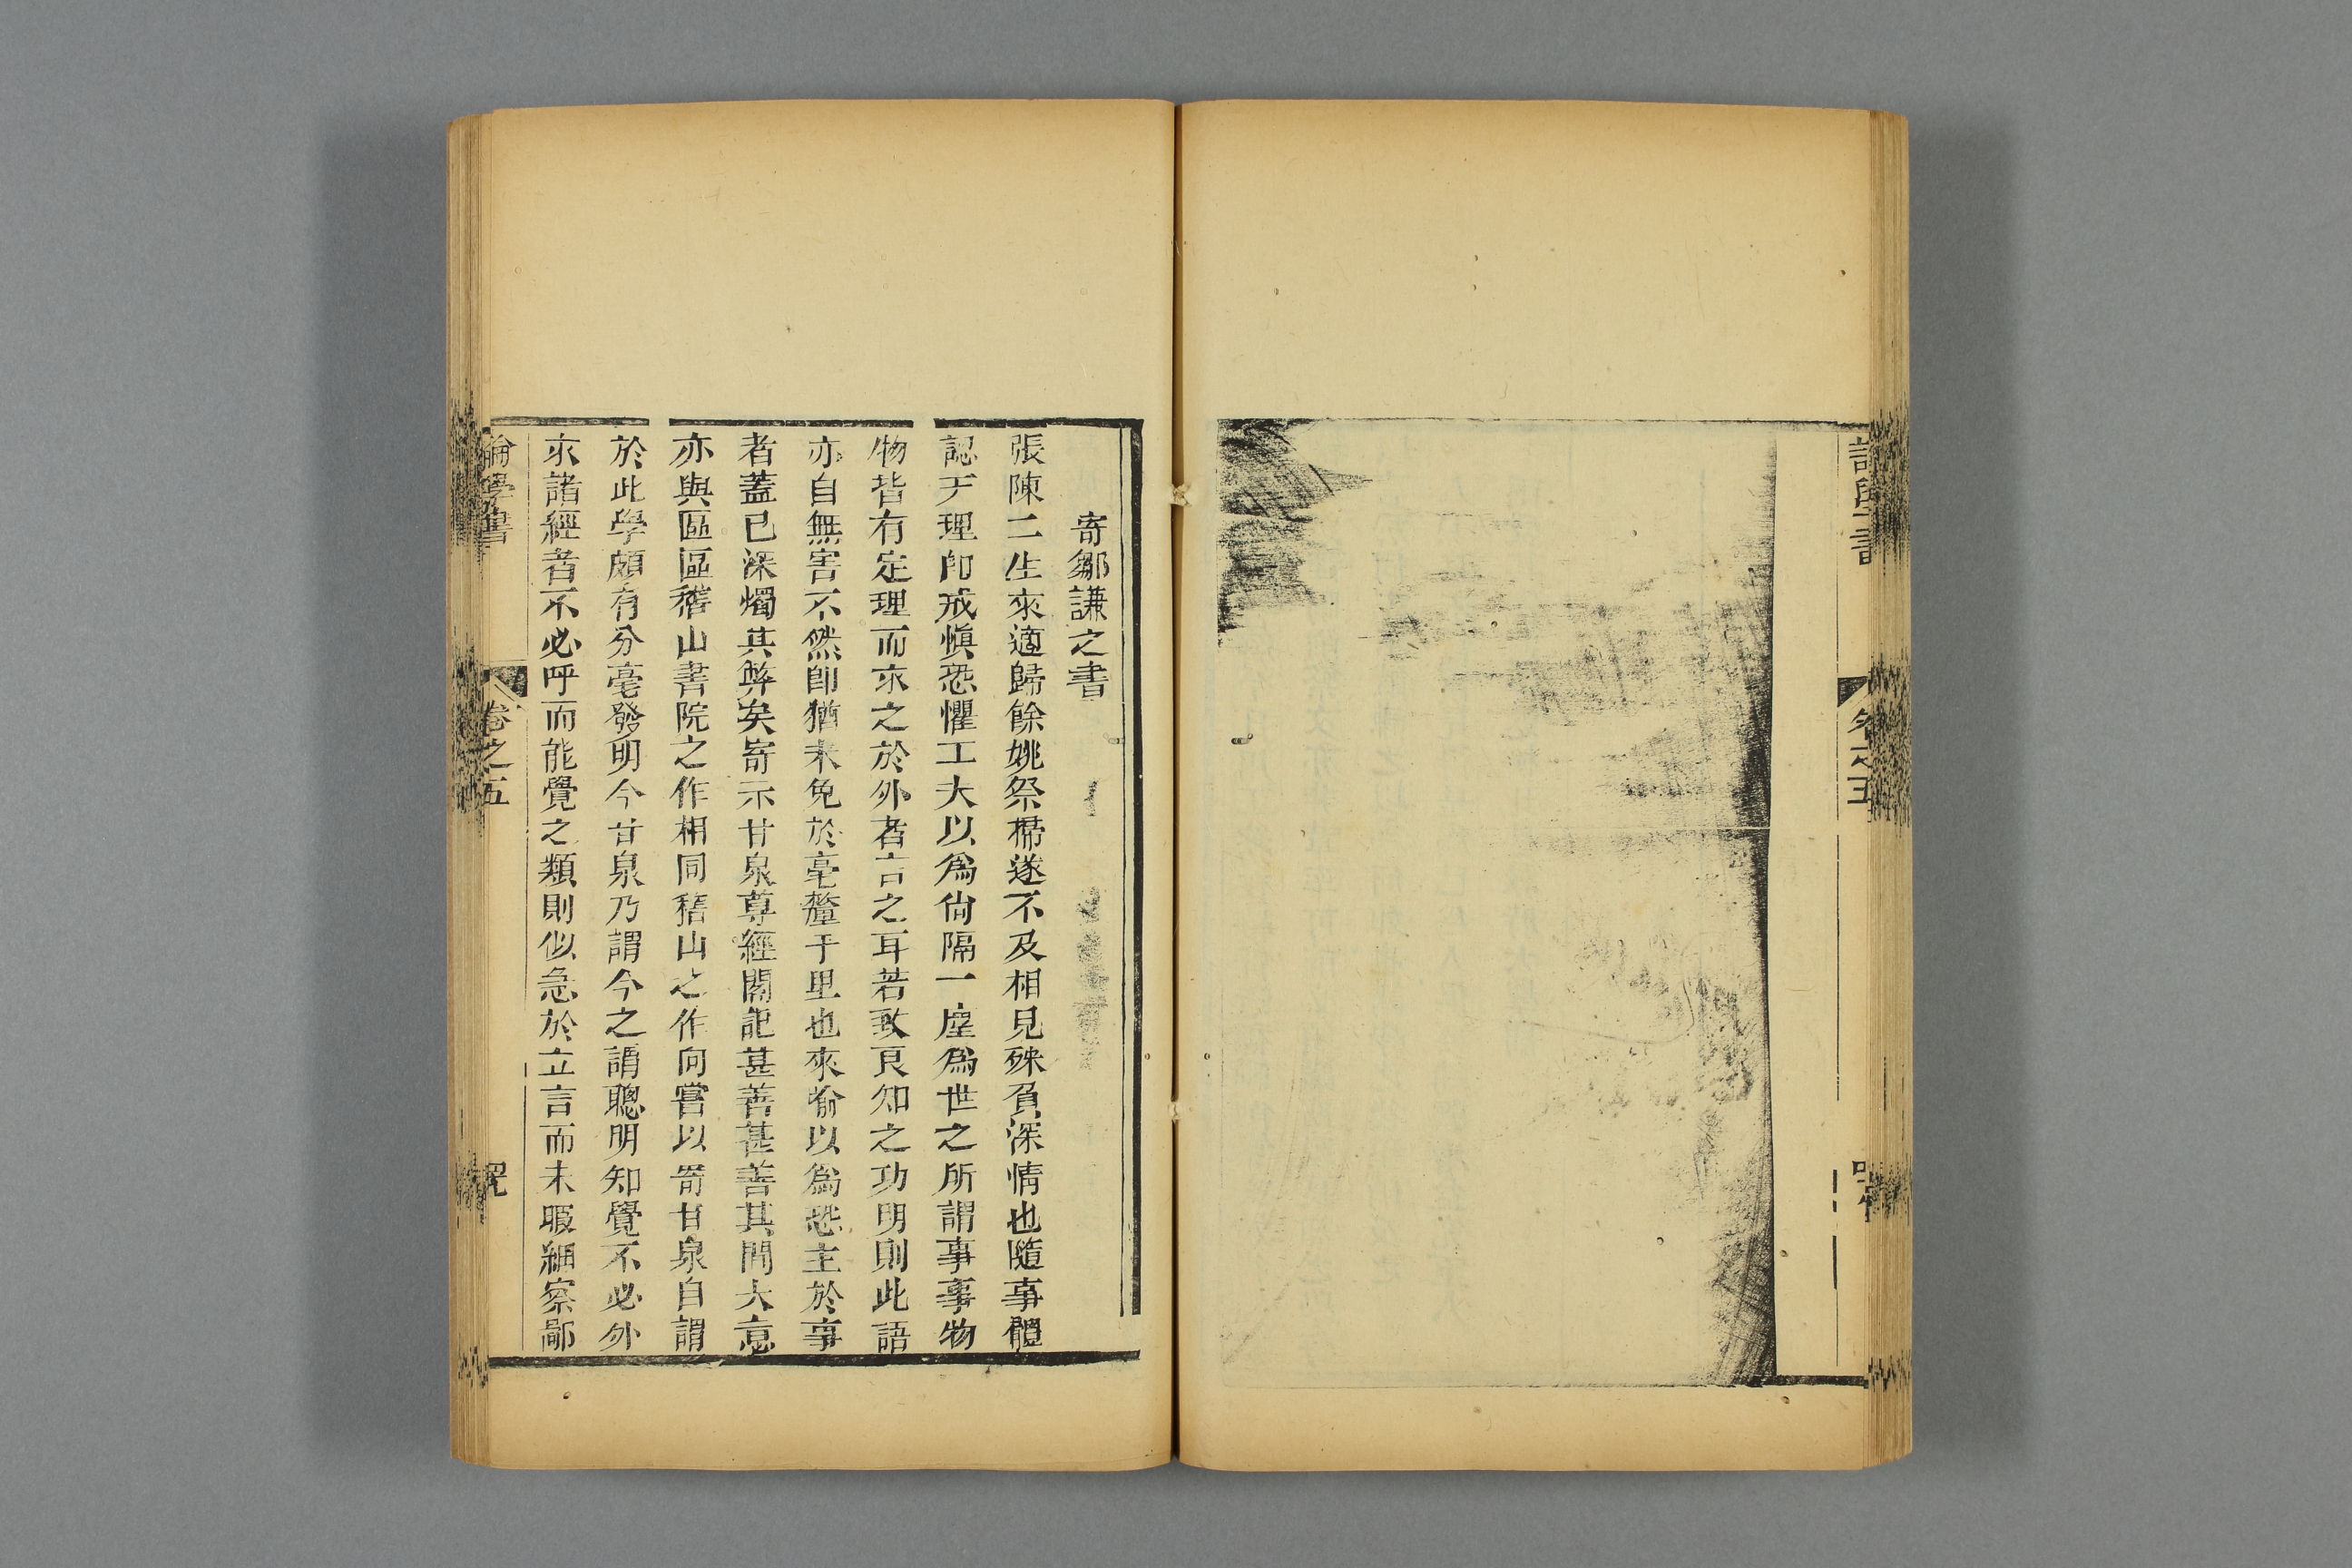 論學書
卷之五
寄鄒謙之書
張陳二生來適歸餘姚祭掃遂不及相見殊負深情也隨事體
認天理即戒慎恐懼工夫以為尚隔一塵為世之所謂事事物
物皆有定理而求之於外者言之耳若致良知之功明則此語
亦自無害不然即猶未免於毫釐千里也來喻以為恐主於事
者蓋已深燭其弊矣寄示甘泉尊經閣記甚善甚善其間大意
亦與區區稽山書院之作相同稽山之作向嘗以寄甘泉自謂
於此學頗有分毫發明今甘泉乃謂今之謂聰明知覺不必外
求諸經者不必呼而能覺之類則似急於立言而未暇細察鄙
論學書
卷之五